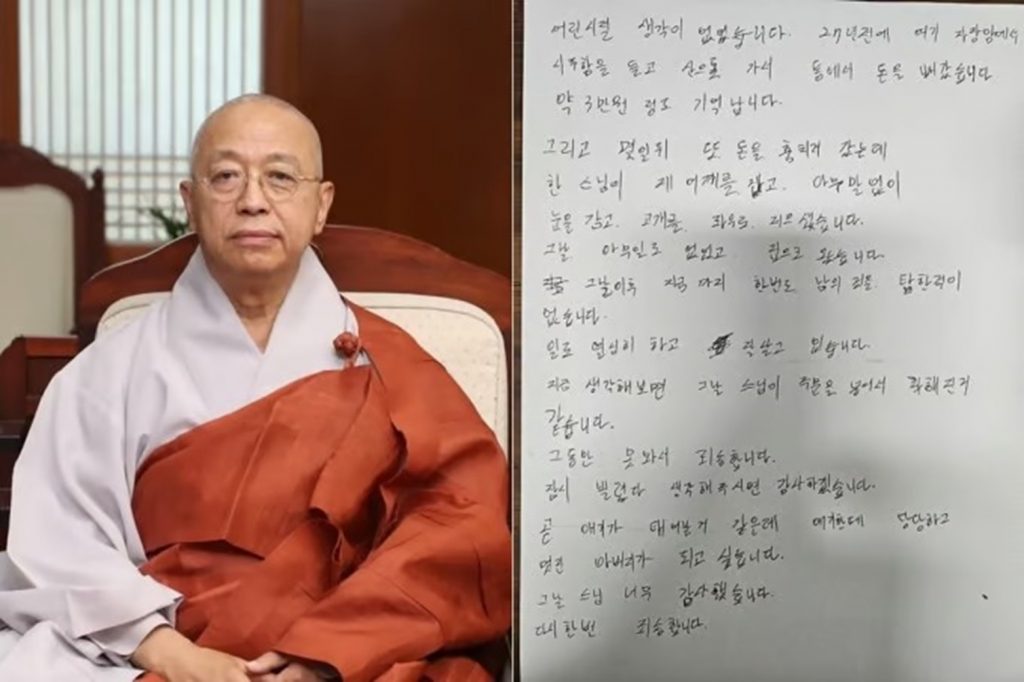 어린시절 생각이 없었습니다. 27년전에 여기 자장암에서
시주함을 들고 산으로 가서 통에서 돈을 빼갔습니다
약 3만원 정도 기억 납니다.
그리고 몇일뒤 또 돈을 훔치러 갔는데
한 스님이 제 어깨를 잡고. 아무말 없이
눈을 감고. 고개를 좌우로 저으셨습니다.
그날 아무일도 없었고 집으로 왔습니다.
그날이후 지금 까지 한번도 남의 것을 탐한적이
없습니다.
일도 열심히 하고 잘살고 있습니다.
지금 생각해보면 그날 스님이 주문을 넣어서 착해진거
같습니다.
그동안 못와서 죄송합니다.
잠시 빌렸다 생각해주시면 감사하겠습니다.
곧 애기가 태어날거 같은데 애기한테 당당하고
멋진 아버지가 되고 싶습니다.
그날 스님 너무 감사했습니다.
다시한번 죄송합니다.